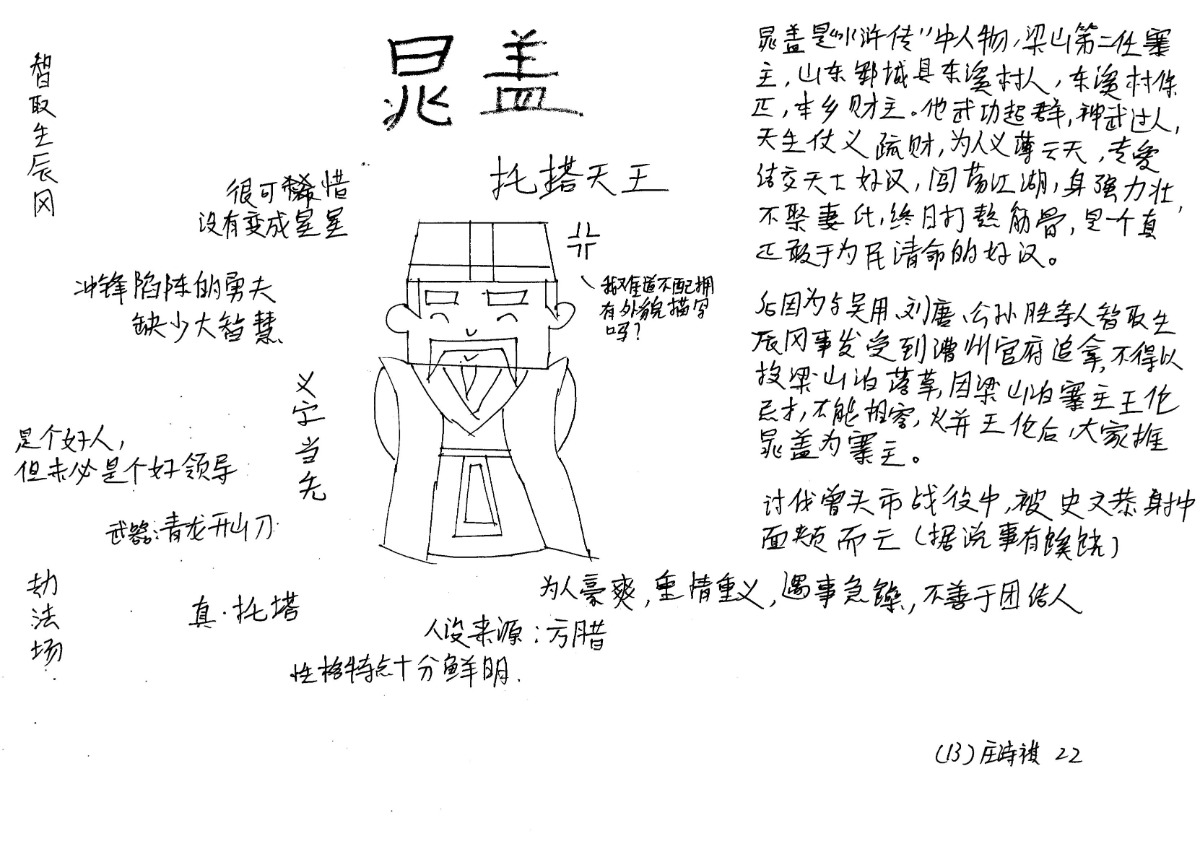 晁盖
托塔天王
智取生辰冈
很可惜
没有变成星星
冲锋陷阵的勇夫
缺少大智慧
我难道不配拥
有外貌描写
吗？
义字当先
是个好人，
但未必是个好领导
武器：青龙开山刀
劫法场
真·托塔
晁盖是“水浒传”中人物，梁山第二任寨
主，山东郓城县东溪村人，东溪村保
正，本乡财主。他武功超群，神武过人，
天生仗义疏财，为人义薄云天，专爱
结交天士好汉，闯荡江湖，身强力壮，
不娶妻氏，终日打熬筋骨，是一个真
正敢于为民请命的好汉。
后因为与吴用、刘唐、公孙胜等人智取生
辰冈事发受到漕州官府追拿，不得以
投梁山泊落草，因梁山泊寨主王伦
忌才，不能相容，火并王伦后，大家推
晁盖为寨主。
讨伐曾头市战役中，被史文恭射中
面颊而亡（据说事有蹊跷）
为人豪爽，重情重义，遇事急躁，不善于团结人
人设来源：方腊
性格特点十分鲜明.
(13)庄诗祺 22